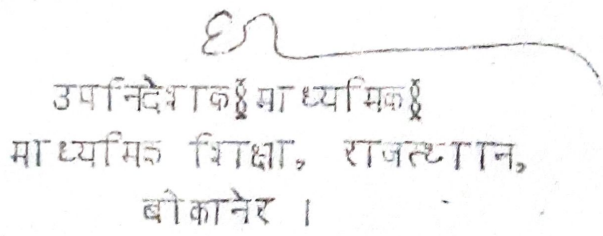 उपनिदेशक§माध्यमिक§
माध्यमिक शिक्षा, राजस्थान,
बीकानेर ।